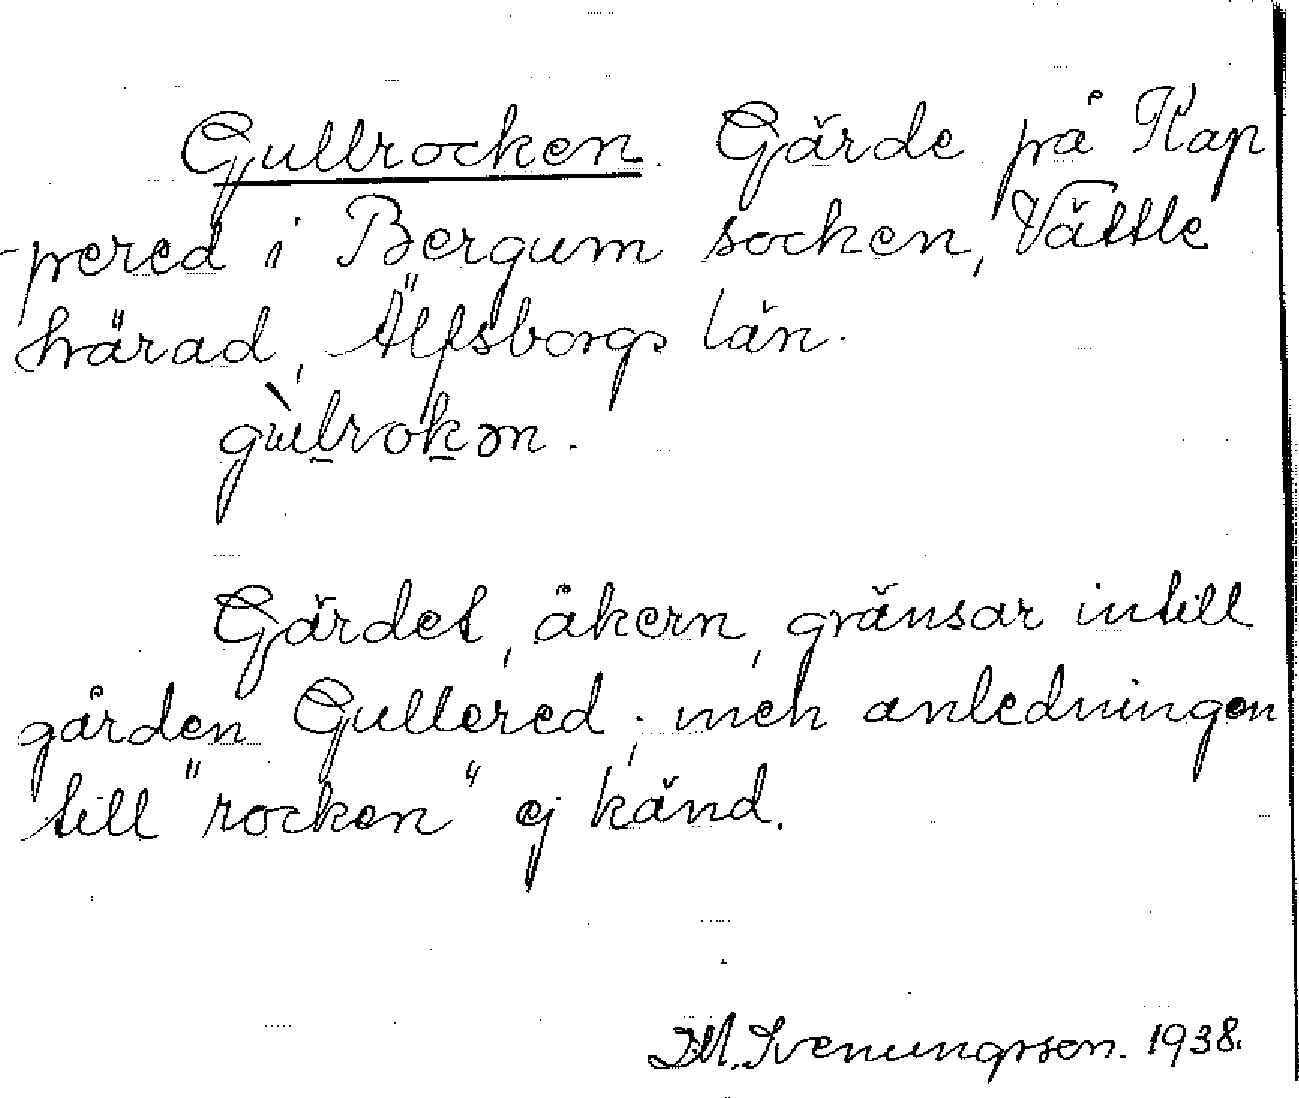 Gullrocken. Gärde på Kap
-pered i Bergum socken, Vättle
härad, Älfsborgs län.
gùlrokən.
Gärdet, åkern, gränsar intill
gården Gullered; men anledningen
till "rocken" ej känd.
D.M. Svenungsson. 1938.